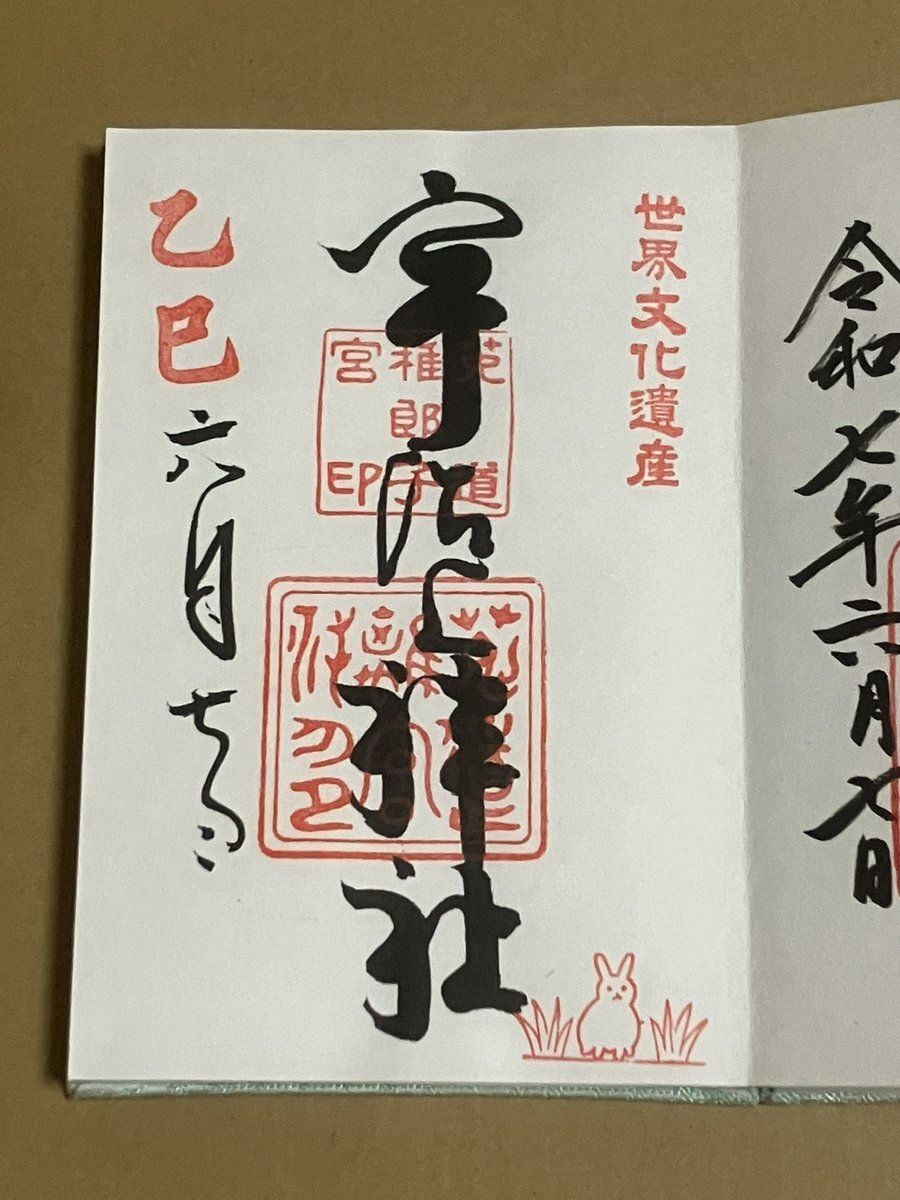 令和七年六月七日
世界文化遺産
宇治上神社
菟道
稚郎子
宮印
乙巳
六月七日